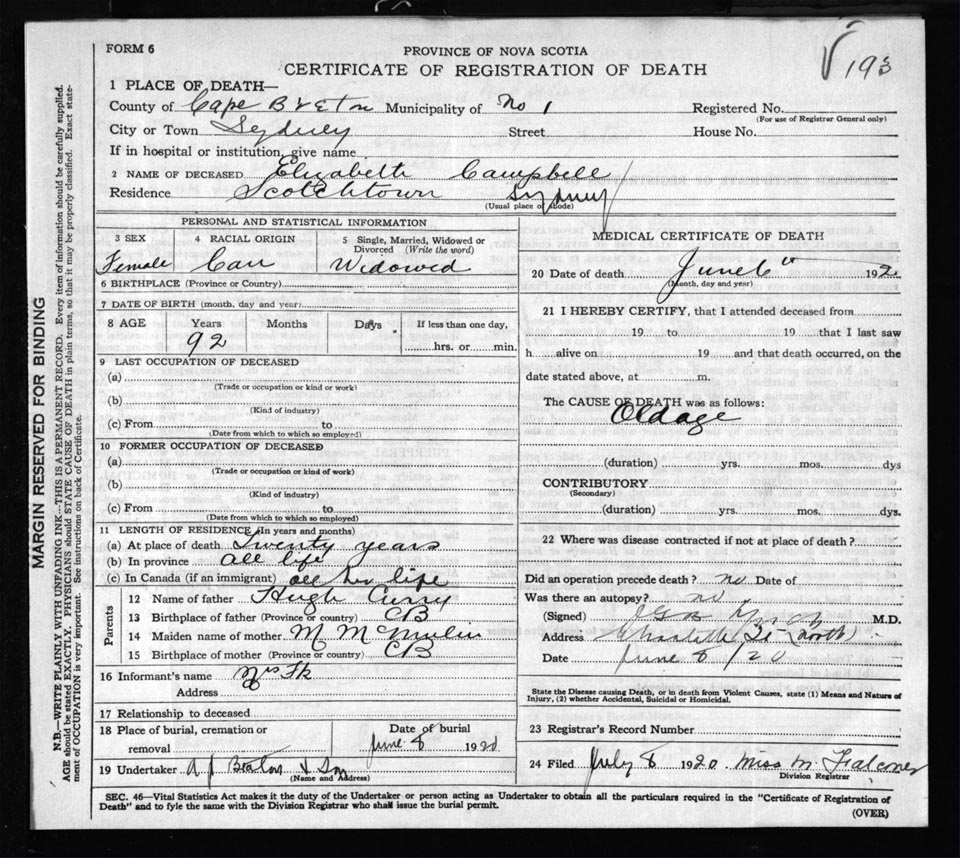 FORM 6
PROVINCE OF NOVA SCOTIA
CERTIFICATE OF REGISTRATION OF DEATH
193
MARGIN RESERVED FOR BINDING
N.B.—WRITE PLAINLY WITH UNFADING INK—THIS IS A PERMANENT RECORD. Every item of information should be carefully supplied.
AGE should be stated EXACTLY. PHYSICIANS should STATE CAUSE OF DEATH in plain terms, so that it may be properly classified. Exact state-
ment of OCCUPATION is very important. See instructions on back of Certificate.
1 PLACE OF DEATH—
County of Cape Breton Municipality of No 1 Registered No.
(For use of Registrar General only)
City or Town Sydney Street House No.
If in hospital or institution, give name
2 NAME OF DECEASED Elizabeth Campbell
Residence Scotchtown Sydney
(Usual place of abode)
PERSONAL AND STATISTICAL INFORMATION
3 SEX 4 RACIAL ORIGIN 5 Single, Married, Widowed or
Divorced (Write the word)
Female Can Widowed
6 BIRTHPLACE (Province or Country)
7 DATE OF BIRTH (month, day and year)
8 AGE Years Months Days If less than one day,
92 hrs. or min.
9 LAST OCCUPATION OF DECEASED
(a)
(Trade or occupation or kind or work)
(b)
(Kind of industry)
(c) From to
(Date from which to which so employed)
10 FORMER OCCUPATION OF DECEASED
(a)
(Trade or occupation or kind of work)
(b)
(Kind of industry)
(c) From to
(Date from which to which so employed)
11 LENGTH OF RESIDENCE (In years and months)
(a) At place of death Twenty years
(b) In province all life
(c) In Canada (if an immigrant) all her life
Parents
12 Name of father Hugh Curry
13 Birthplace of father (Province or country) CB
14 Maiden name of mother M McMulin
15 Birthplace of mother (Province or country) CB
16 Informant's name Mrs
Address
17 Relationship to deceased
18 Place of burial, cremation or Date of burial
removal June 8 1920
19 Undertaker A J Beaton & Son
(Name and Address)
MEDICAL CERTIFICATE OF DEATH
20 Date of death June 6 192
(Month, day and year)
21 I HEREBY CERTIFY, that I attended deceased from
19 to 19 that I last saw
h alive on 19 and that death occurred, on the
date stated above, at m.
The CAUSE OF DEATH was as follows:
Old age
(duration) yrs. mos. dys
CONTRIBUTORY
(Secondary)
(duration) yrs. mos. dys.
22 Where was disease contracted if not at place of death?
Did an operation precede death? no Date of
Was there an autopsy? no
(Signed) M.D.
Address Charlotte St (north)
Date June 8 / 20
State the Disease causing Death, or in death from Violent Causes, state (1) Means and Nature of
Injury, (2) whether Accidental, Suicidal or Homicidal.
23 Registrar's Record Number
24 Filed July 8 1920 Miss M. Falconer
Division Registrar
SEC. 46—Vital Statistics Act makes it the duty of the Undertaker or person acting as Undertaker to obtain all the particulars required in the "Certificate of Registration of
Death" and to fyle the same with the Division Registrar who shall issue the burial permit.
(OVER)